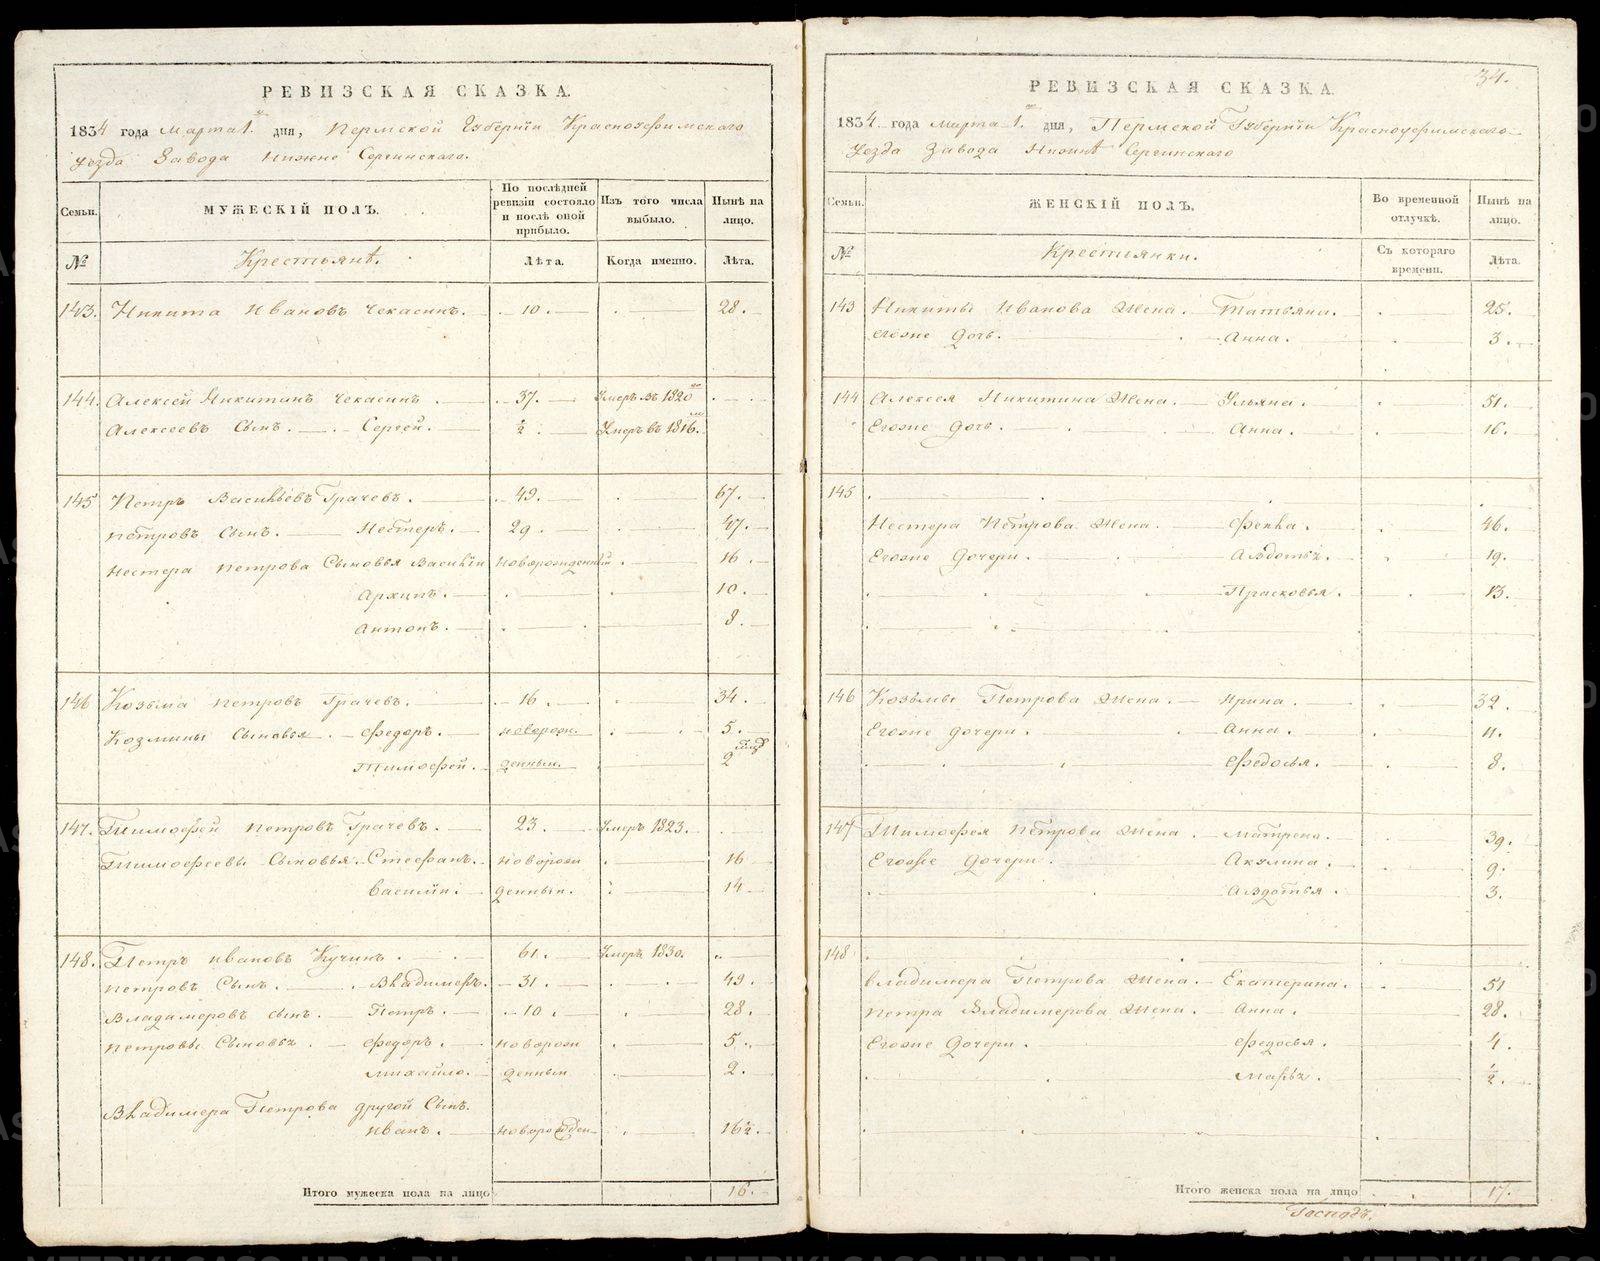 РЕВИЗСКАЯ СКАЗКА.
1834 года марта 1. дня, Пермской Губернїи Красноуфимскаго
уезда Завода Нижне Сергинскаго.
Семьи. МУЖЕСКІЙ ПОЛЪ. По послѣдней ревизіи состояло и послѣ оной прибыло. Изъ того числа выбыло. Нынѣ на лицо.
№ Крестьянѣ. Лѣта. Когда именно. Лѣта.
143. Никита Ивановъ Чекасинъ. 10. 28.
144. Алексей Никитинъ Чекасинъ. 37. Умеръ въ 1820го
Алексеевъ Сынъ. Сергей. ½ Умеръ въ 1816.
145 Петръ Васильевъ Грачевъ. 49. 67.
Петровъ Сынъ. Нестеръ. 29. 47.
Нестера Петрова Сыновья Василїй новорожденнїй 16.
Архипъ. 10.
Антонъ. 8.
146 Козьма Петровъ Грачевъ. 16. 34.
Козмины Сыновья. Федоръ. новорож. 5.
Тимофей. денным. 2
147. Тимофей Петровъ Грачевъ. 23. Умеръ 1823.
Тимофеевы Сыновья. Стефанъ. новорож 16
Василїи. денныи. 14
148. Петръ Ивановъ Кучинъ. 61. Умеръ 1830.
Петровъ Сынъ. Владимеръ. 31. 49.
Владимеровъ сынъ. Петръ. 10. 28.
Петровы Сыновья. Федоръ. новорож 5.
Михайло. денныи 2.
Владимера Петрова другой Сынъ.
Иванъ. новорожден 16½.
Итого мужеска пола на лицо 16.
34.
РЕВИЗСКАЯ СКАЗКА.
1834 года марта 1. дня, Пермской Губернїи Красноуфимскаго
Уезда Завода Нижнѣ Сергинскаго
Семьи. ЖЕНСКІЙ ПОЛЪ. Во временной отлучкѣ. Нынѣ на лицо.
№ Крестьянки. Съ котораго времени. Лѣта.
143 Никиты Иванова Жена. Татьяна. 25.
Егоже Дочь. Анна. 3.
144 Алексея Никитина Жена. Ульяна. 51.
Егоже Дочь. Анна. 16.
145
Нестера Петрова Жена. Фекла. 46.
Егоже Дочери. Авдотья. 19.
Прасковья. 13.
146 Козьмы Петрова Жена. Ирина. 32.
Егоже дочери. Анна. 11.
Федосья. 8.
147 Тимофея Петрова Жена. Матрена. 39.
Егоже Дочери. Акулина. 9.
Авдотья. 3.
148
Владимера Петрова Жена. Екатерина. 51
Петра Владимерова Жена. Анна. 28.
Егоже Дочери. Федосья. 4.
Марья. ½.
Итого женска пола на лицо 17.
Господъ.